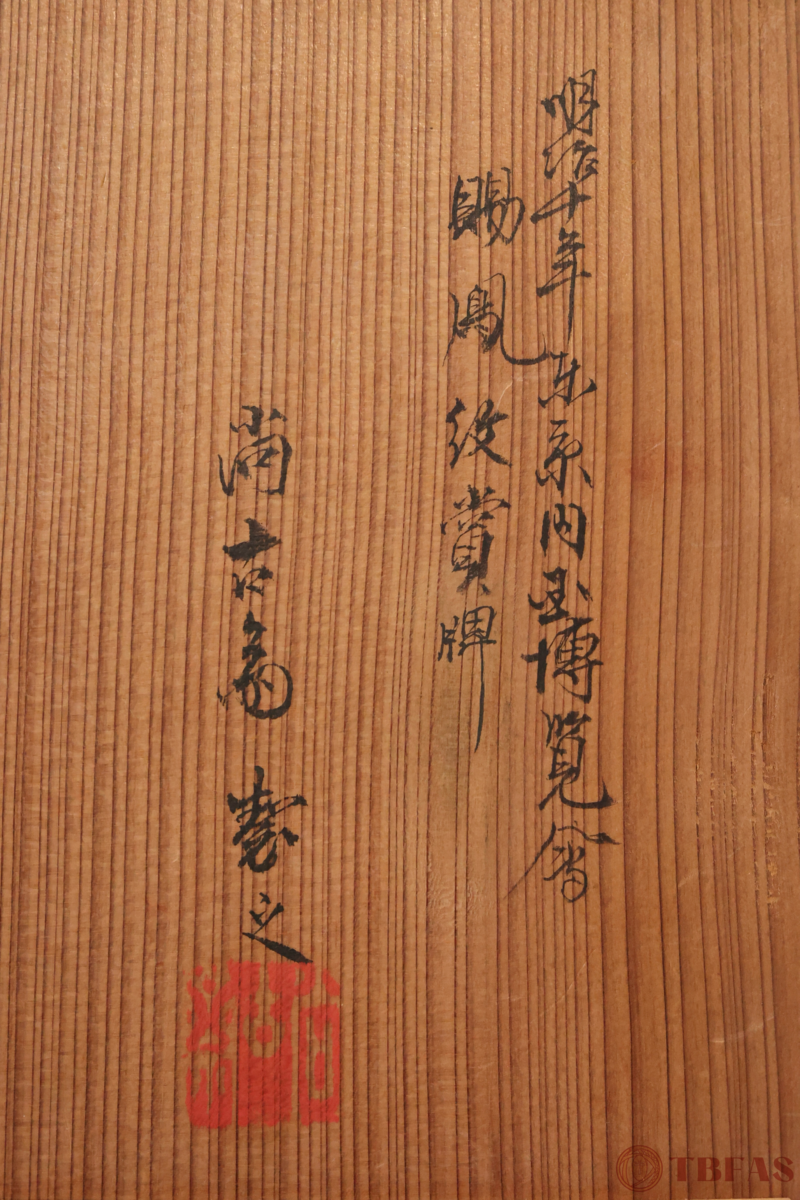 明治十年東京内国博覧會
賜鳳紋賞牌
尚古斎製之
TBFAS